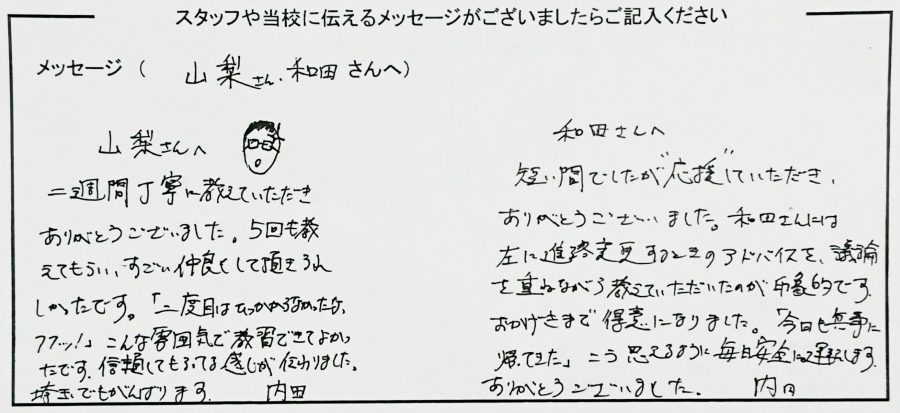 スタッフや当校に伝えるメッセージがございましたらご記入ください
メッセージ ( 山梨さん・和田さんへ)
山梨さんへ
二週間丁寧に教えていただき
ありがとうございました。5回も教
えてもらい、すごい仲良くして頂きうれ
しかったです。「二度目はひっかからなかったな、
フフッ!」こんな雰囲気で教習できてよかっ
たです。信頼してもらってる感じが伝わりました。
埼玉でもがんばります。 内田
和田さんへ
短い間でしたが"応援"していただき、
ありがとうございました。和田さんには
左に進路変更するときのアドバイスを、議論
を重ねながら教えていただいたのが印象的です。
おかげさまで得意になりました。「今日も無事に
帰ってきた」こう思えるように毎日安全に運転します。
ありがとうございました。 内田